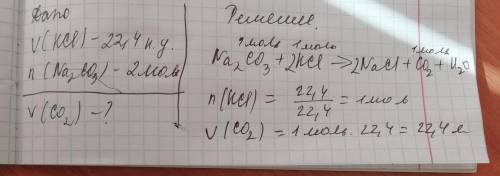 Дано
V(HCl) - 22,4 н.у.
n(Na₂CO₃) - 2моль
V(CO₂) - ?
Решение.
1моль 1моль 1моль
Na₂CO₃ + 2HCl → 2NaCl + CO₂ + H₂O
n(HCl) = 22,4/22,4 = 1моль
V(CO₂) = 1моль · 22,4 = 22,4 л